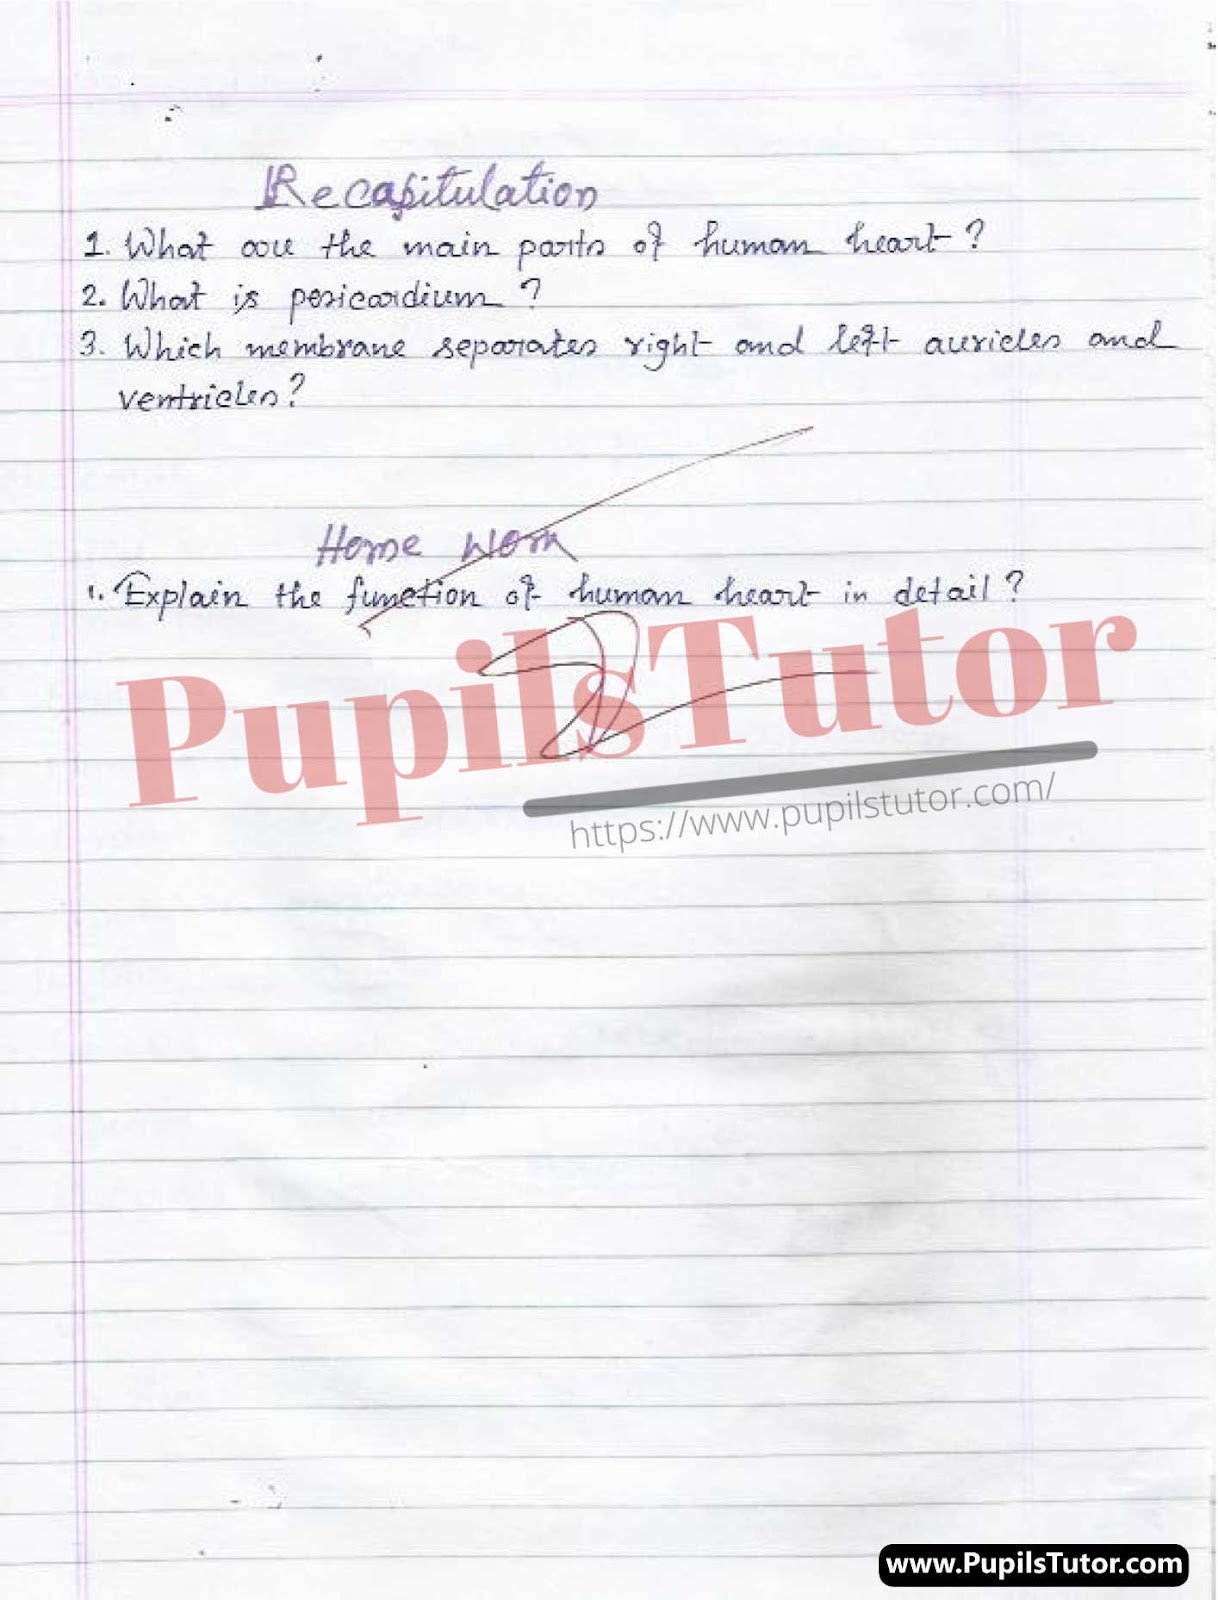 Recapitulation
1. What are the main parts of human heart?
2. What is pericardium?
3. Which membrane separates right and left auricles and
ventricles?
Home Work
1. Explain the function of human heart in detail?
PupilsTutor
https://www.pupilstutor.com/
www.PupilsTutor.com